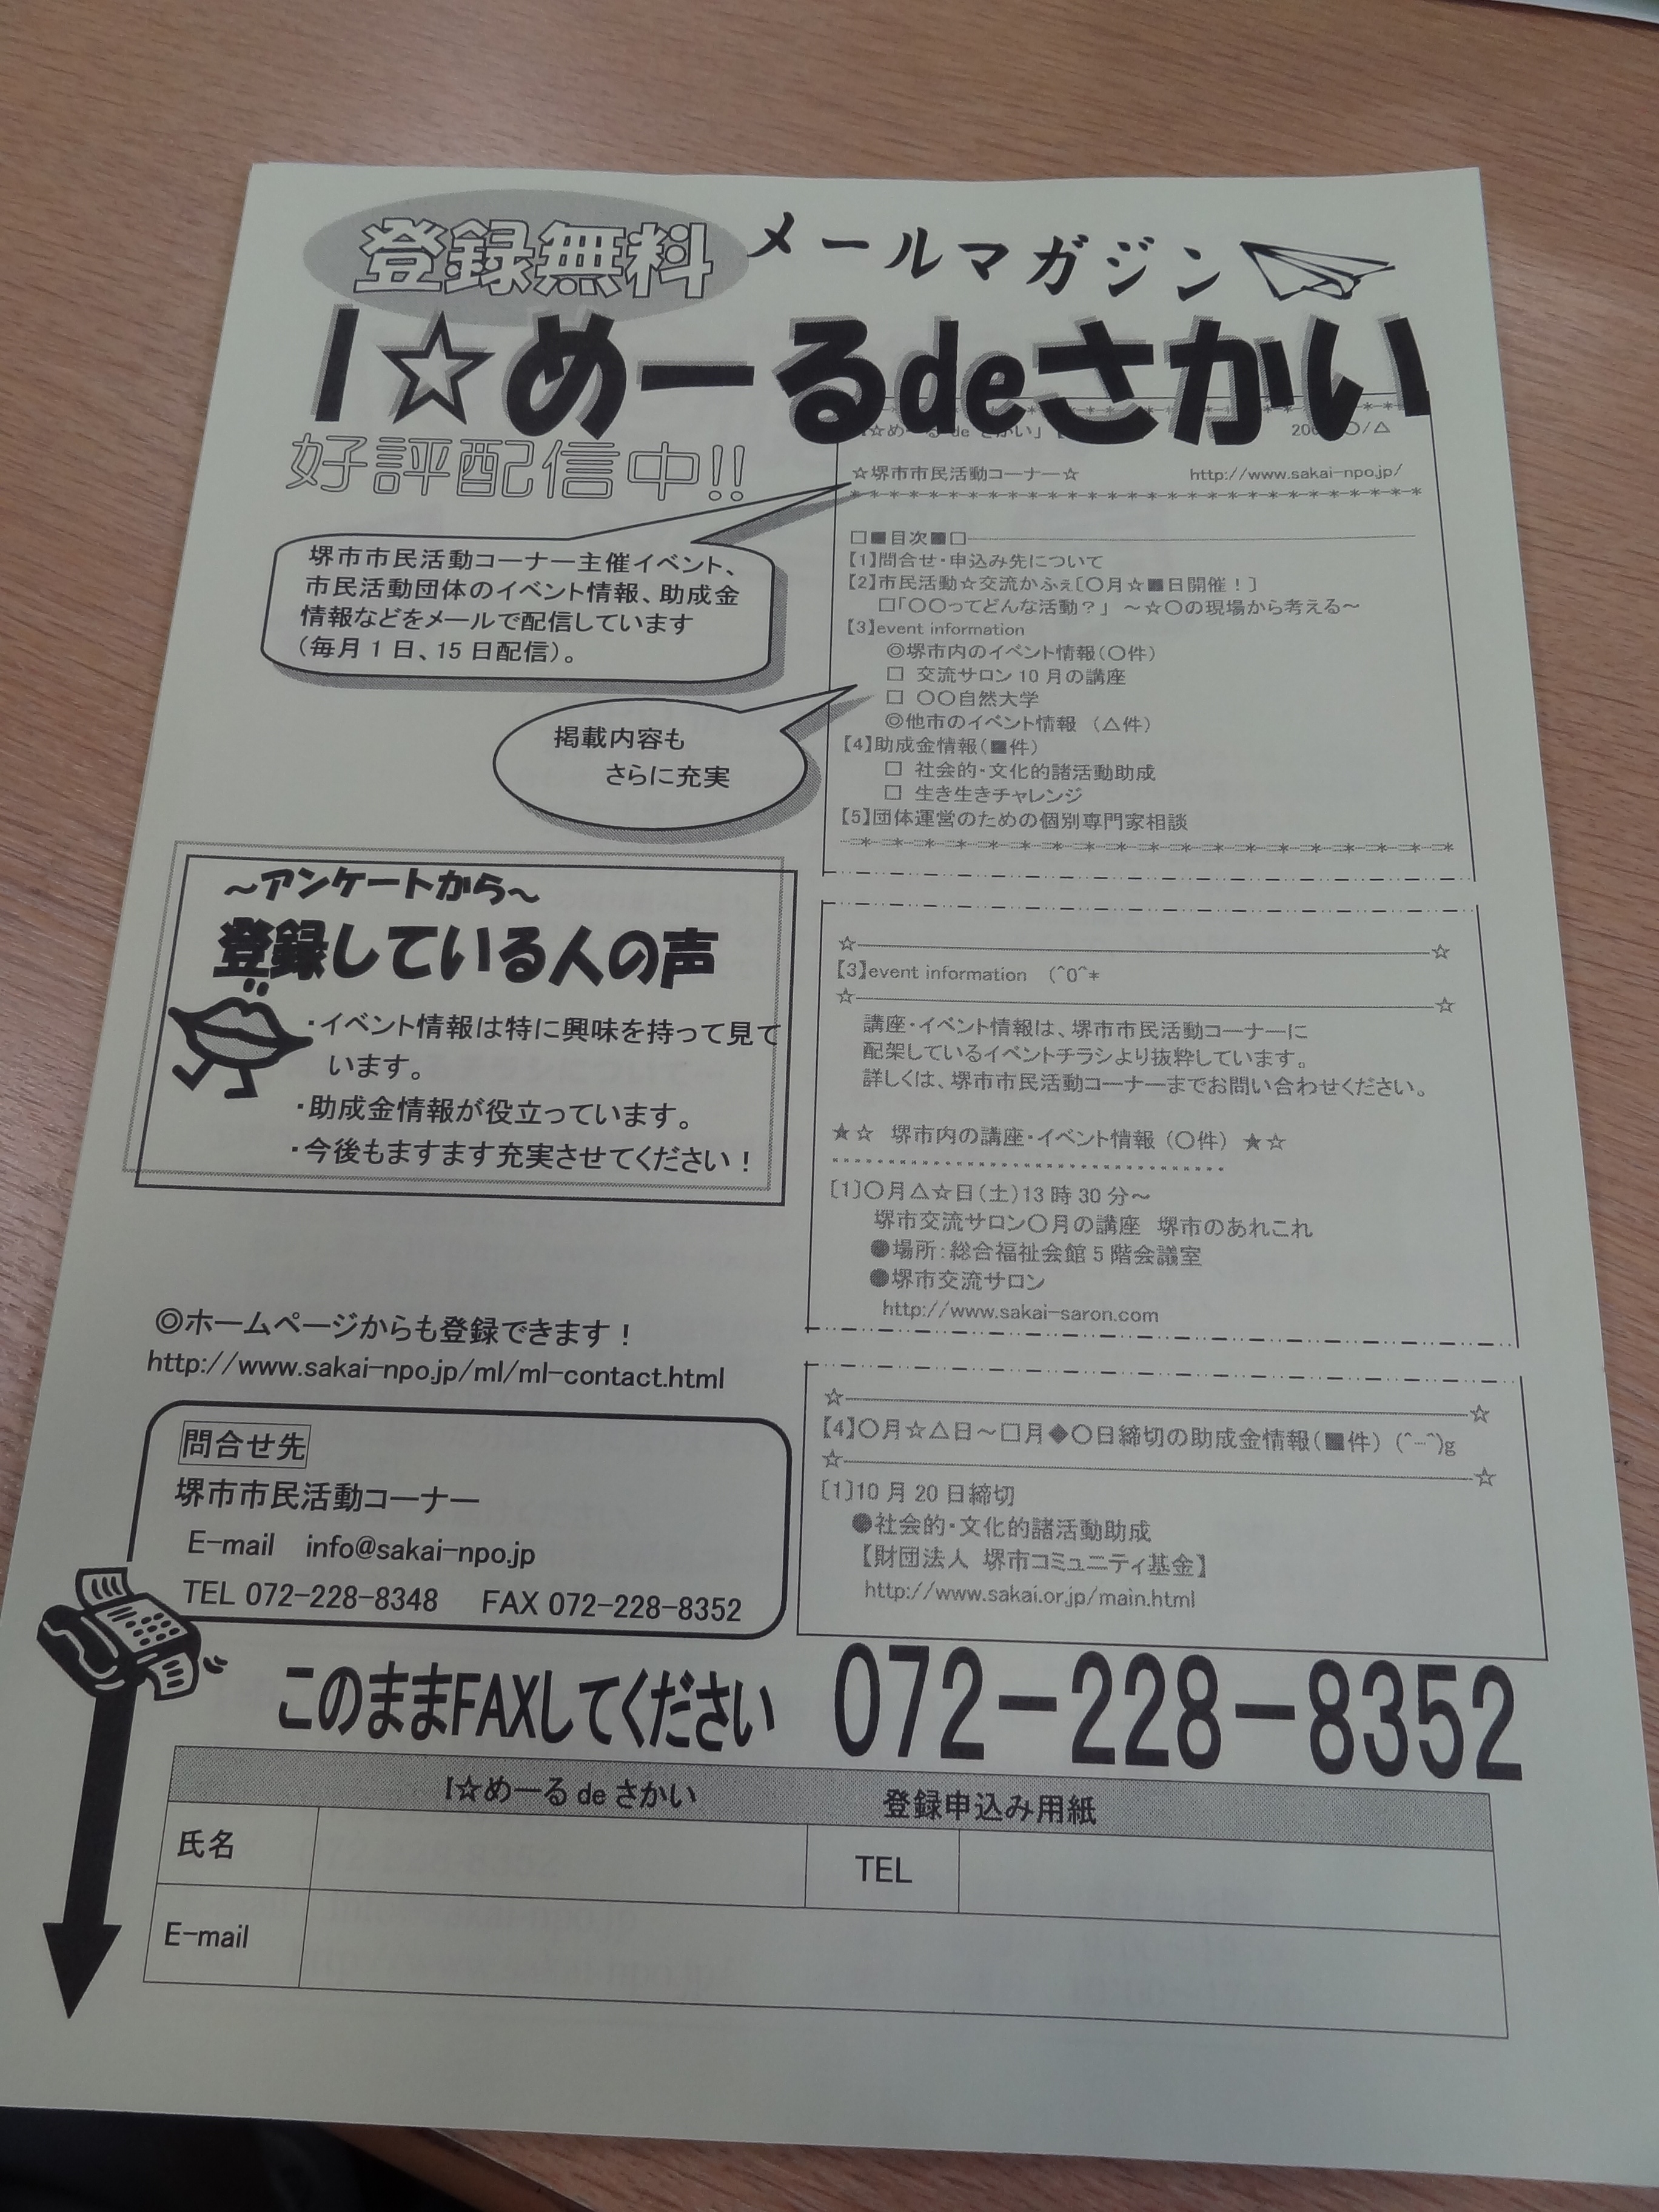 登録無料 メールマガジン
I☆めーるdeさかい
好評配信中!!
堺市市民活動コーナー主催イベント、
市民活動団体のイベント情報、助成金
情報などをメールで配信しています
(毎月1日、15日配信)。
掲載内容も
さらに充実
☆めーる de さかい」
○/△
☆堺市市民活動コーナー☆ http://www.sakai-npo.jp/
□■目次■□
【1】問合せ・申込み先について
【2】市民活動☆交流かふぇ〔○月☆■日開催!〕
□「○○ってどんな活動?」 ~☆○の現場から考える~
【3】event information
◎堺市内のイベント情報(○件)
□ 交流サロン10月の講座
□ ○○自然大学
◎他市のイベント情報 (△件)
【4】助成金情報(■件)
□ 社会的・文化的諸活動助成
□ 生き生きチャレンジ
【5】団体運営のための個別専門家相談
~アンケートから~
登録している人の声
・イベント情報は特に興味を持って見て
います。
・助成金情報が役立っています。
・今後もますます充実させてください!
☆ ☆
【3】event information (^0^*
☆ ☆
講座・イベント情報は、堺市市民活動コーナーに
配架しているイベントチラシより抜粋しています。
詳しくは、堺市市民活動コーナーまでお問い合わせください。
★☆ 堺市内の講座・イベント情報(○件) ★☆
〔1〕○月△☆日(土)13時30分~
堺市交流サロン○月の講座 堺市のあれこれ
●場所:総合福祉会館5階会議室
●堺市交流サロン
http://www.sakai-saron.com
◎ホームページからも登録できます!
http://www.sakai-npo.jp/ml/ml-contact.html
問合せ先
堺市市民活動コーナー
E-mail info@sakai-npo.jp
TEL 072-228-8348 FAX 072-228-8352
☆ ☆
【4】○月☆△日~□月◆○日締切の助成金情報(■件) (^-^)g
☆ ☆
〔1〕10月20日締切
●社会的・文化的諸活動助成
【財団法人 堺市コミュニティ基金】
http://www.sakai.or.jp/main.html
このままFAXしてください 072-228-8352
I☆めーる de さかい 登録申込み用紙
氏名 TEL
E-mail